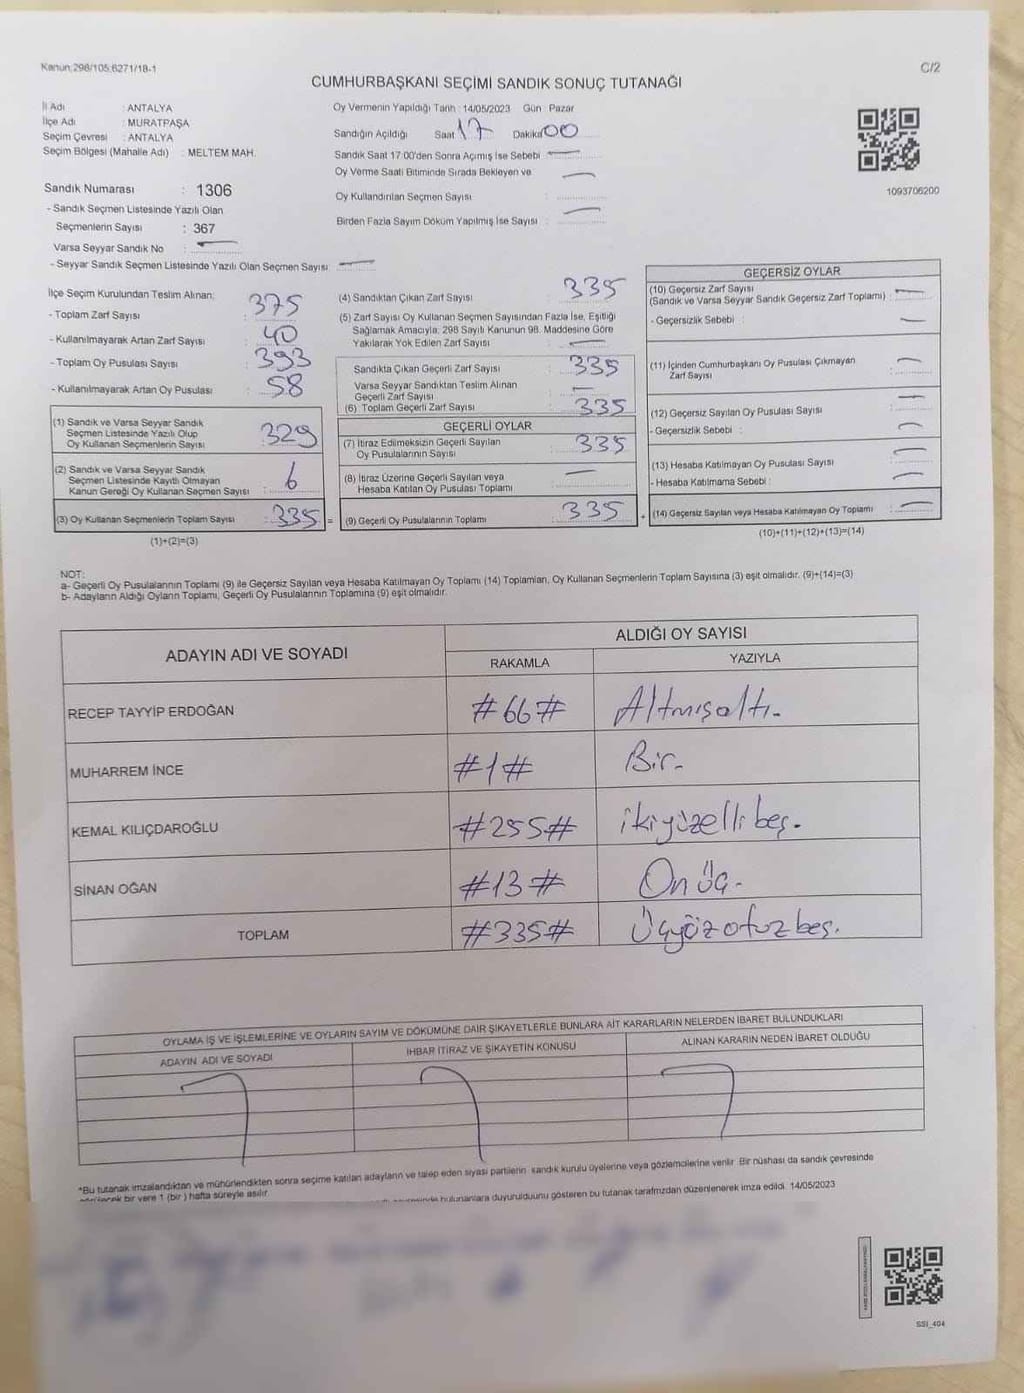 Kanun:298/105:6271/18-1
C/2
CUMHURBAŞKANI SEÇİMİ SANDIK SONUÇ TUTANAĞI
İl Adı : ANTALYA
İlçe Adı : MURATPAŞA
Seçim Çevresi : ANTALYA
Seçim Bölgesi (Mahalle Adı) : MELTEM MAH.
Sandık Numarası : 1306
- Sandık Seçmen Listesinde Yazılı Olan
Seçmenlerin Sayısı : 367
Varsa Seyyar Sandık No :
- Seyyar Sandık Seçmen Listesinde Yazılı Olan Seçmen Sayısı:
Oy Vermenin Yapıldığı Tarih : 14/05/2023 Gün : Pazar
Sandığın Açıldığı Saat 17 Dakika 00
Sandık Saat 17:00'den Sonra Açımış İse Sebebi :
Oy Verme Saati Bitiminde Sırada Bekleyen ve
Oy Kullandırılan Seçmen Sayısı :
Birden Fazla Sayım Döküm Yapılmış İse Sayısı :
1093706200
İlçe Seçim Kurulundan Teslim Alınan:
- Toplam Zarf Sayısı : 375
- Kullanılmayarak Artan Zarf Sayısı : 40
- Toplam Oy Pusulası Sayısı : 393
- Kullanılmayarak Artan Oy Pusulası : 58
(1) Sandık ve Varsa Seyyar Sandık
Seçmen Listesinde Yazılı Olup
Oy Kullanan Seçmenlerin Sayısı : 329
(2) Sandık ve Varsa Seyyar Sandık
Seçmen Listesinde Kayıtlı Olmayan
Kanun Gereği Oy Kullanan Seçmen Sayısı : 6
(3) Oy Kullanan Seçmenlerin Toplam Sayısı : 335 =
(1)+(2)=(3)
(4) Sandıktan Çıkan Zarf Sayısı : 335
(5) Zarf Sayısı Oy Kullanan Seçmen Sayısından Fazla İse, Eşitliği
Sağlamak Amacıyla; 298 Sayılı Kanunun 98. Maddesine Göre
Yakılarak Yok Edilen Zarf Sayısı :
Sandıkta Çıkan Geçerli Zarf Sayısı : 335
Varsa Seyyar Sandıktan Teslim Alınan
Geçerli Zarf Sayısı :
(6) Toplam Geçerli Zarf Sayısı : 335
GEÇERLİ OYLAR
(7) İtiraz Edilmeksizin Geçerli Sayılan
Oy Pusulalarının Sayısı : 335
(8) İtiraz Üzerine Geçerli Sayılan veya
Hesaba Katılan Oy Pusulası Toplamı :
(9) Geçerli Oy Pusulalarının Toplamı : 335 +
GEÇERSİZ OYLAR
(10) Geçersiz Zarf Sayısı
(Sandık ve Varsa Seyyar Sandık Geçersiz Zarf Toplamı) :
- Geçersizlik Sebebi :
(11) İçinden Cumhurbaşkanı Oy Pusulası Çıkmayan
Zarf Sayısı :
(12) Geçersiz Sayılan Oy Pusulası Sayısı :
- Geçersizlik Sebebi :
(13) Hesaba Katılmayan Oy Pusulası Sayısı :
- Hesaba Katılmama Sebebi :
(14) Geçersiz Sayılan veya Hesaba Katılmayan Oy Toplamı :
(10)+(11)+(12)+(13)=(14)
NOT:
a- Geçerli Oy Pusulalarının Toplamı (9) ile Geçersiz Sayılan veya Hesaba Katılmayan Oy Toplamı (14) Toplamları, Oy Kullanan Seçmenlerin Toplam Sayısına (3) eşit olmalıdır. (9)+(14)=(3)
b- Adayların Aldığı Oyların Toplamı, Geçerli Oy Pusulalarının Toplamına (9) eşit olmalıdır.
ADAYIN ADI VE SOYADI
ALDIĞI OY SAYISI
RAKAMLA YAZIYLA
RECEP TAYYİP ERDOĞAN #66# Altmışaltı.
MUHARREM İNCE #1# Bir.
KEMAL KILIÇDAROĞLU #255# ikiyüzellibeş.
SİNAN OĞAN #13# Onüç.
TOPLAM #335# Üçyüzotuzbeş.
OYLAMA İŞ VE İŞLEMLERİNE VE OYLARIN SAYIM VE DÖKÜMÜNE DAİR ŞİKAYETLERLE BUNLARA AİT KARARLARIN NELERDEN İBARET BULUNDUKLARI
ADAYIN ADI VE SOYADI İHBAR İTİRAZ VE ŞİKAYETİN KONUSU ALINAN KARARIN NEDEN İBARET OLDUĞU
*Bu tutanak imzalandıktan ve mühürlendikten sonra seçime katılan adayların ve talep eden siyasi partilerin sandık kurulu üyelerine veya gözlemcilerine verilir. Bir nüshası da sandık çevresinde
bir yere 1 (bir) hafta süreyle asılır.
bulunanlara duyurulduunu gösteren bu tutanak tarafımızdan düzenlenerek imza edildi. 14/05/2023
SSI_404